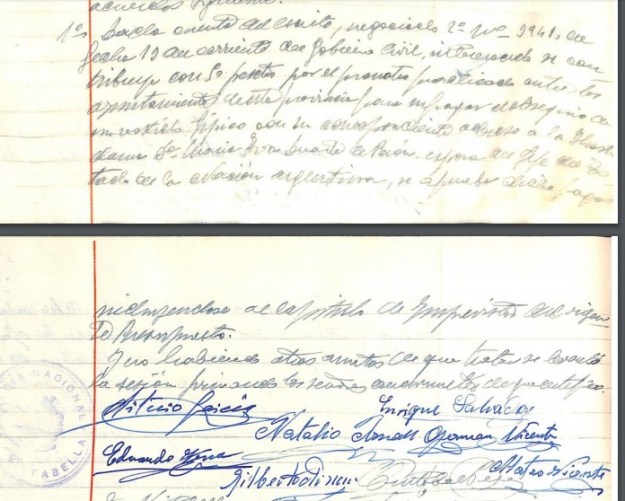 acuerdos siguientes:
1º, Dada cuenta del escrito, negociado 2º nº 3941, de
fecha 19 del corriente del Gobierno Civil, interesando se con
tribuya con 50 pesetas por el prorrateo practicado entre los
ayuntamientos de esta provincia para sufragar el obsequio de
un vestido típico con su correspondiente a la Ilustrísima
dama Dª María Eva Duarte de Perón, esposa del Jefe del Es
tado de la Nación argentina, se aprueba dicho pago
al capítulo de Imprevistos del vigen
te Presupuesto.
Y no habiendo otros asuntos de que tratar se levantó
la sesión firmando los señores concurrentes de que certifico.
García Enrique
Natalio German Vicente
Eduardo Mateo Vicente
Gilberto
NACIONAL
TABELLA